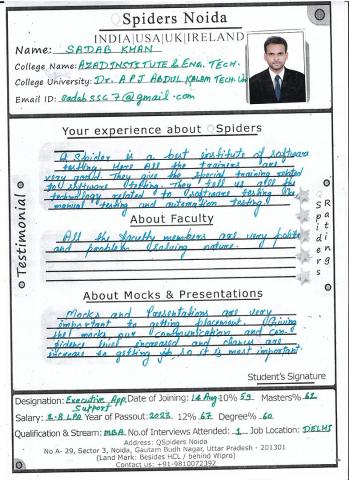 QSpiders Noida
INDIA|USA|UK|IRELAND
Name: SADAB KHAN
College Name: AZAD INSTITUTE & ENG. TECH.
College University: Dr. APJ ABDUL KALAM TECH. Uni
Email ID: sadab5567@gmail.com
Your experience about QSpiders
Q Spider is a best institute of software
testing. Here All the trainers are
very good. They give the special training related
to software testing. They tell us all the
technology related to software testing like
manual testing and automation testing.
Testimonial
QSpiders Ratings
About Faculty
All the faculty members are very polite
and problem solving nature.
About Mocks & Presentations
Mocks and Presentations are very
important to getting placement. Giving
the mocks our communication and con-
fidence level increased and chances are
increase to getting job so it is most important.
Student's Signature
Designation: Executive App. Support Date of Joining: 16 Aug 10% 59 Masters% 62
Salary: 2.8 LPA Year of Passout 2022 12% 67 Degree% 60
Qualification & Stream: MBA No.of Interviews Attended: 1 Job Location: DELHI
Address: QSpiders Noida
No A- 29, Sector 3, Noida, Gautam Budh Nagar, Uttar Pradesh - 201301
(Land Mark: Besides HCL / behind Wipro)
Contact us: +91-9810072392